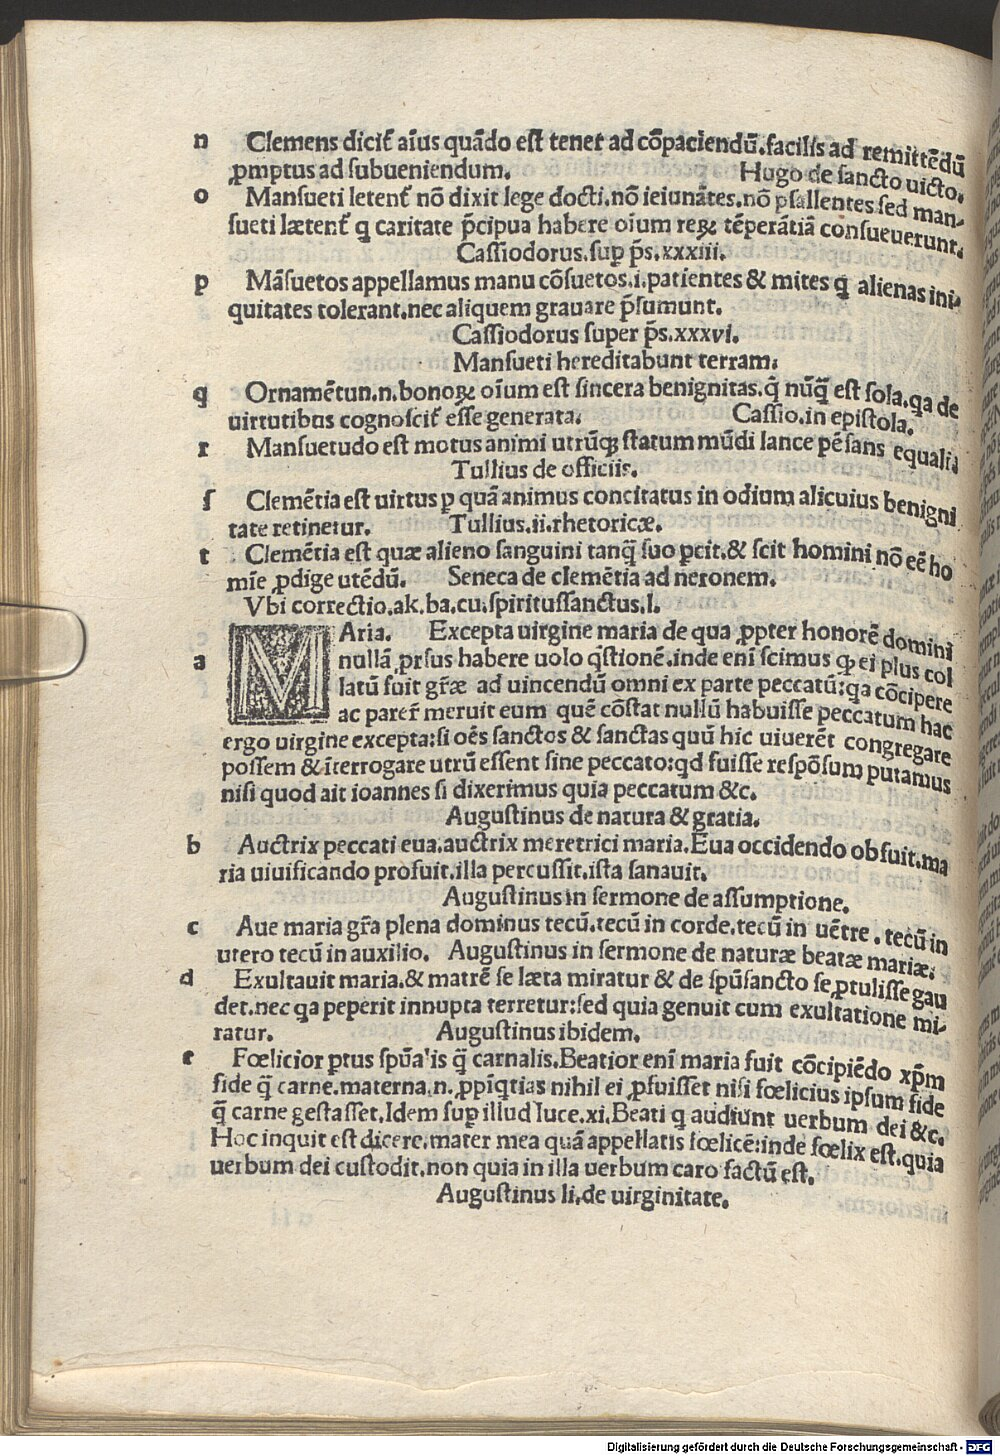 n Clemens dicit᷑ aĩus quãdo est tenet ad cõpaciendũ.facilis ad remittẽdũ
ꝓmptus ad subueniendum. Hugo de sancto uicto.
o Mansueti letent᷑ nõ dixit lege docti.nõ ieiunãtes.nõ psallentes.sed man-
sueti lætent᷑ q caritate p̃cipua habere oĩum reꝝ tẽperãtiã consueuerunt.
Cassiodorus.suꝑ p̃s.xxxiii.
p Mãsuetos appellamus manu cõsuetos.i.patientes & mites q̃ alienas ini-
quitates tolerant.nec aliquem grauare p̃sumunt.
Cassiodorus super p̃s.xxxvi.
Mansueti hereditabunt terram.
q Ornamẽtun.n.bonoꝝ oĩum est sincera benignitas.q̃ nũq̃ est sola.qa de
uirtutibus cognoscit᷑ esse generata. Cassio.in epistola.
r Mansuetudo est motus animi utrũqꝫ statum mũdi lance pẽsans equali.
Tullius de officiis.
ſ Clemẽtia est uirtus ꝑ quã animus concitatus in odium alicuius benigni
tate retinetur. Tullius.ii.rhetoricæ.
t Clemẽtia est quæ alieno sanguini tanq̃ suo ꝑcit.& scit homini nõ eẽ ho
mĩe ꝓdige utẽdũ. Seneca de clemẽtia ad neronem.
Vbi correctio.ak.ba.cu.spiritussanctus.l.
MAria. Excepta uirgine maria de qua ꝓpter honorẽ domini
a nullã ꝓrsus habere uolo q̃stionẽ.inde eni᷑ scimus ꝙ ei plus col
latũ fuit gr̃æ ad uincendũ omni ex parte peccatũ:qa cõcipere
ac parer᷑ meruit eum quẽ cõstat nullũ habuisse peccatum hac
ergo uirgine excepta:si oẽs sanctos & sanctas quũ hic uiuerẽt congregare
possem & ĩterrogare utrũ essent sine peccato:qd fuisse respõsum putamus
nisi quod ait ioannes si dixerimus quia peccatum &c.
Augustinus de natura & gratia.
b Auctrix peccati eua.auctrix meretrici maria.Eua occidendo obfuit.ma
ria uiuificando profuit.illa percussit.ista sanauit.
Augustinus in sermone de assumptione.
c Aue maria gr̃a plena dominus tecũ.tecũ in corde.tecũ in uẽtre.tecũ in
utero tecũ in auxilio. Augustinus in sermone de naturæ beatæ mariæ.
d Exultauit maria.& matrẽ se læta miratur & de spũsancto se ꝓtulisse gau
det.nec qa peperit innupta terretur:sed quia genuit cum exultatione mi-
ratur. Augustinus ibidem.
e Fœlicior ꝑtus spũalis q̃ carnalis.Beatior eni᷑ maria fuit cõcipiẽdo xp̃m
fide q̃ carne.materna.n.ꝓpĩqtias nihil ei ꝓfuisset nisi fœlicius ipsum fide
q̃ carne gestasset.Idem suꝑ illud luce.xi.Beati q audiunt uerbum dei &c.
Hoc inquit est dicere.mater mea quã appellatis fœlicẽ:inde fœlix est.quia
uerbum dei custodit.non quia in illa uerbum caro factũ est.
Augustinus li.de uirginitate.
Digitalisierung gefördert durch die Deutsche Forschungsgemeinschaft - DFG